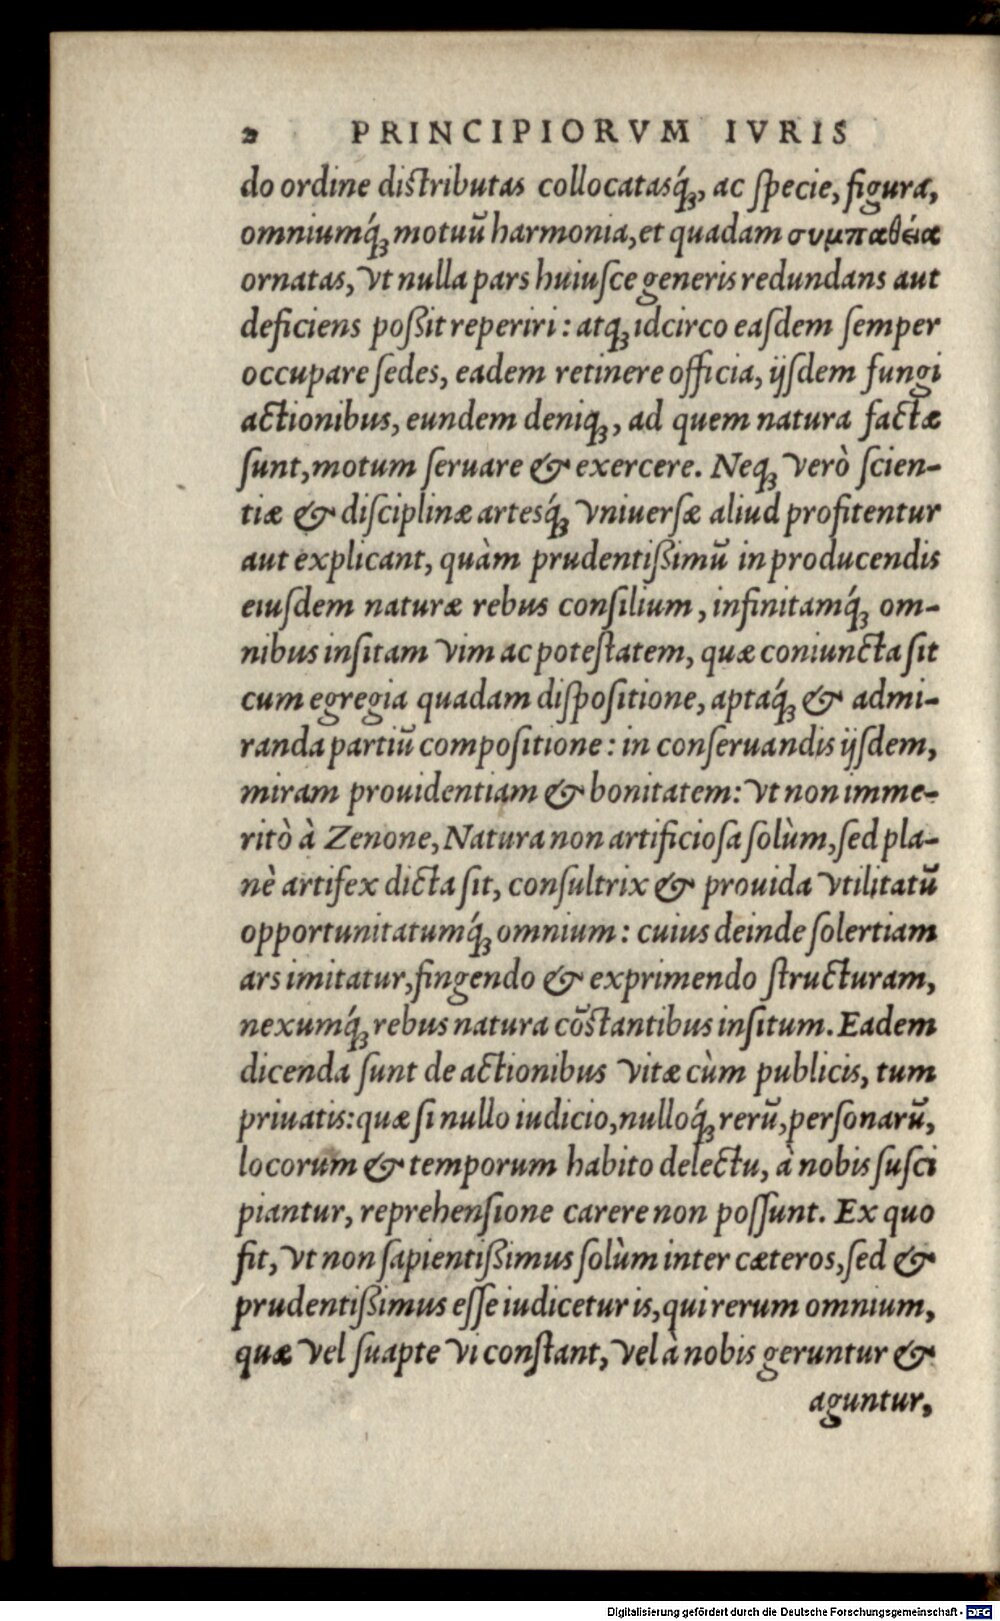 2 PRINCIPIORVM IVRIS
do ordine distributas collocatasq́;, ac specie, figura,
omniumq́; motuũ harmonia, et quadam συμπαθείᾳ
ornatas, vt nulla pars huiusce generis redundans aut
deficiens poßit reperiri: atq; idcirco easdem semper
occupare sedes, eadem retinere officia, ijsdem fungi
actionibus, eundem deniq;, ad quem natura factæ
sunt, motum seruare & exercere. Neq; verò scien-
tiæ & disciplinæ artesq́; vniuersæ aliud profitentur
aut explicant, quàm prudentißimũ in producendis
eiusdem naturæ rebus consilium, infinitamq́; om-
nibus insitam vim ac potestatem, quæ coniuncta sit
cum egregia quadam dispositione, aptaq́; & admi-
randa partiũ compositione: in conseruandis ijsdem,
miram prouidentiam & bonitatem: vt non imme-
ritò à Zenone, Natura non artificiosa solùm, sed pla-
nè artifex dicta sit, consultrix & prouida vtilitatũ
opportunitatumq́; omnium: cuius deinde solertiam
ars imitatur, fingendo & exprimendo structuram,
nexumq́; rebus natura cõstantibus insitum. Eadem
dicenda sunt de actionibus vitæ cùm publicis, tum
priuatis: quæ si nullo iudicio, nulloq́; rerũ, personarũ,
locorum & temporum habito delectu, à nobis susci
piantur, reprehensione carere non possunt. Ex quo
fit, vt non sapientißimus solùm inter cæteros, sed &
prudentißimus esse iudicetur is, qui rerum omnium,
quæ vel suapte vi constant, vel à nobis geruntur &
aguntur,
Digitalisierung gefördert durch die Deutsche Forschungsgemeinschaft - DFG